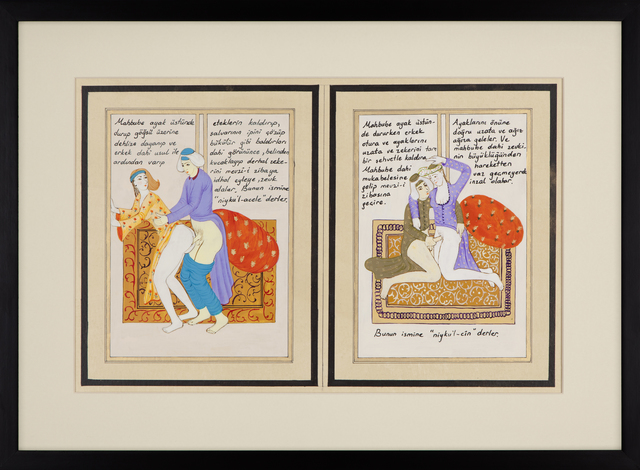 Mahbube ayak üstünde
durup göğsü üzerine
dehlize dayanıp ve
erkek dahi usul ile
ardından varıp
eteklerin kaldırıp,
şalvarının ipini çözüp
gibi baldırları
dahi görününce, belinden
kucaklayıp derhal zeke-
rini mevzi-i zibaya
idhal eyleye, zevk
alalar. Bunun ismine
"niykü'l-acele" derler.
Mahbube ayak üstün-
de dururken erkek
otura ve ayaklarını
uzata ve zekerini
bir şehvetle kaldıra.
Mahbube dahi
mukabelesine
gelip mevzi-i
zibasına
geçire.
Ayaklarını önüne
doğru uzata ve ağız
ağıza geleler. Ve
mahbube dahi zevki-
nin büyüklüğünden
hareketten
vaz geçmeyerek
inzal olalar.
Bunun ismine "niykü'l-cin" derler.